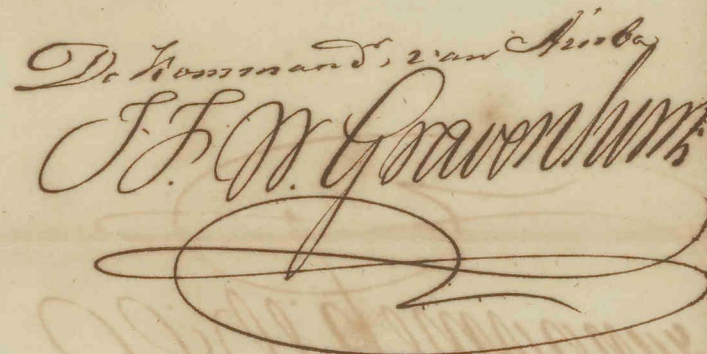 De Kommandr. van Aruba
J. F. W. Gravenhurst